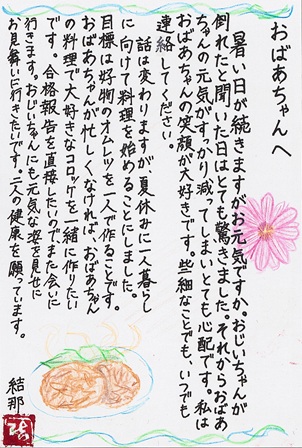 おばあちゃんへ
暑い日が続きますがお元気ですか。おじいちゃんが
倒れたと聞いた日はとても驚きました。それからおばあ
ちゃんの元気がすっかり減ってしまいとても心配です。私は
おばあちゃんの笑顔が大好きです。些細なことでも、いつでも
連絡してください。
話は変わりますが夏休みに一人暮らし
に向けて料理を始めることにしました。
目標は好物のオムレツを一人で作ることです。
おばあちゃんが忙しくなければ、おばあちゃん
の料理で大好きなコロッケを一緒に作りたい
です。合格報告を直接したいのでまた会いに
行きます。おじいちゃんにも元気な姿を見せに
お見舞いに行きたいです。二人の健康を願っています。
結那